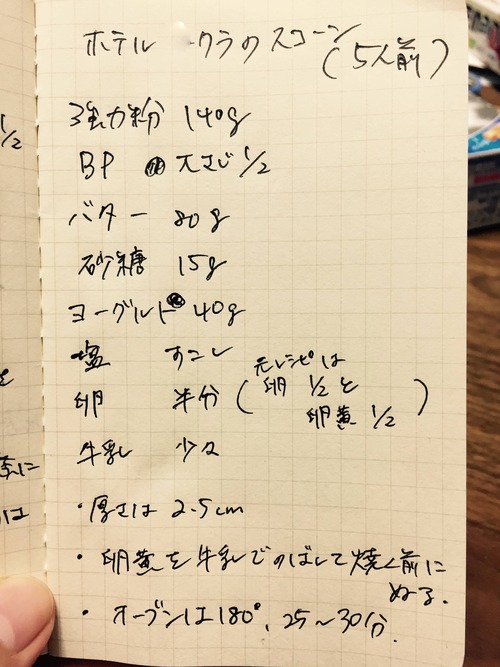 ホテル ークラのスコーン
(5人前)
強力粉 140g
BP 大さじ 1/2
バター 80g
砂糖 15g
ヨーグルト 40g
塩 すこし
卵 半分 (元レシピは卵 1/2 と卵黄 1/2)
牛乳 少々
・厚さは 2.5cm
・卵黄を牛乳でのばして焼く前に
ぬる.
・オーブンは180°、25〜30分.
1/2
に
は